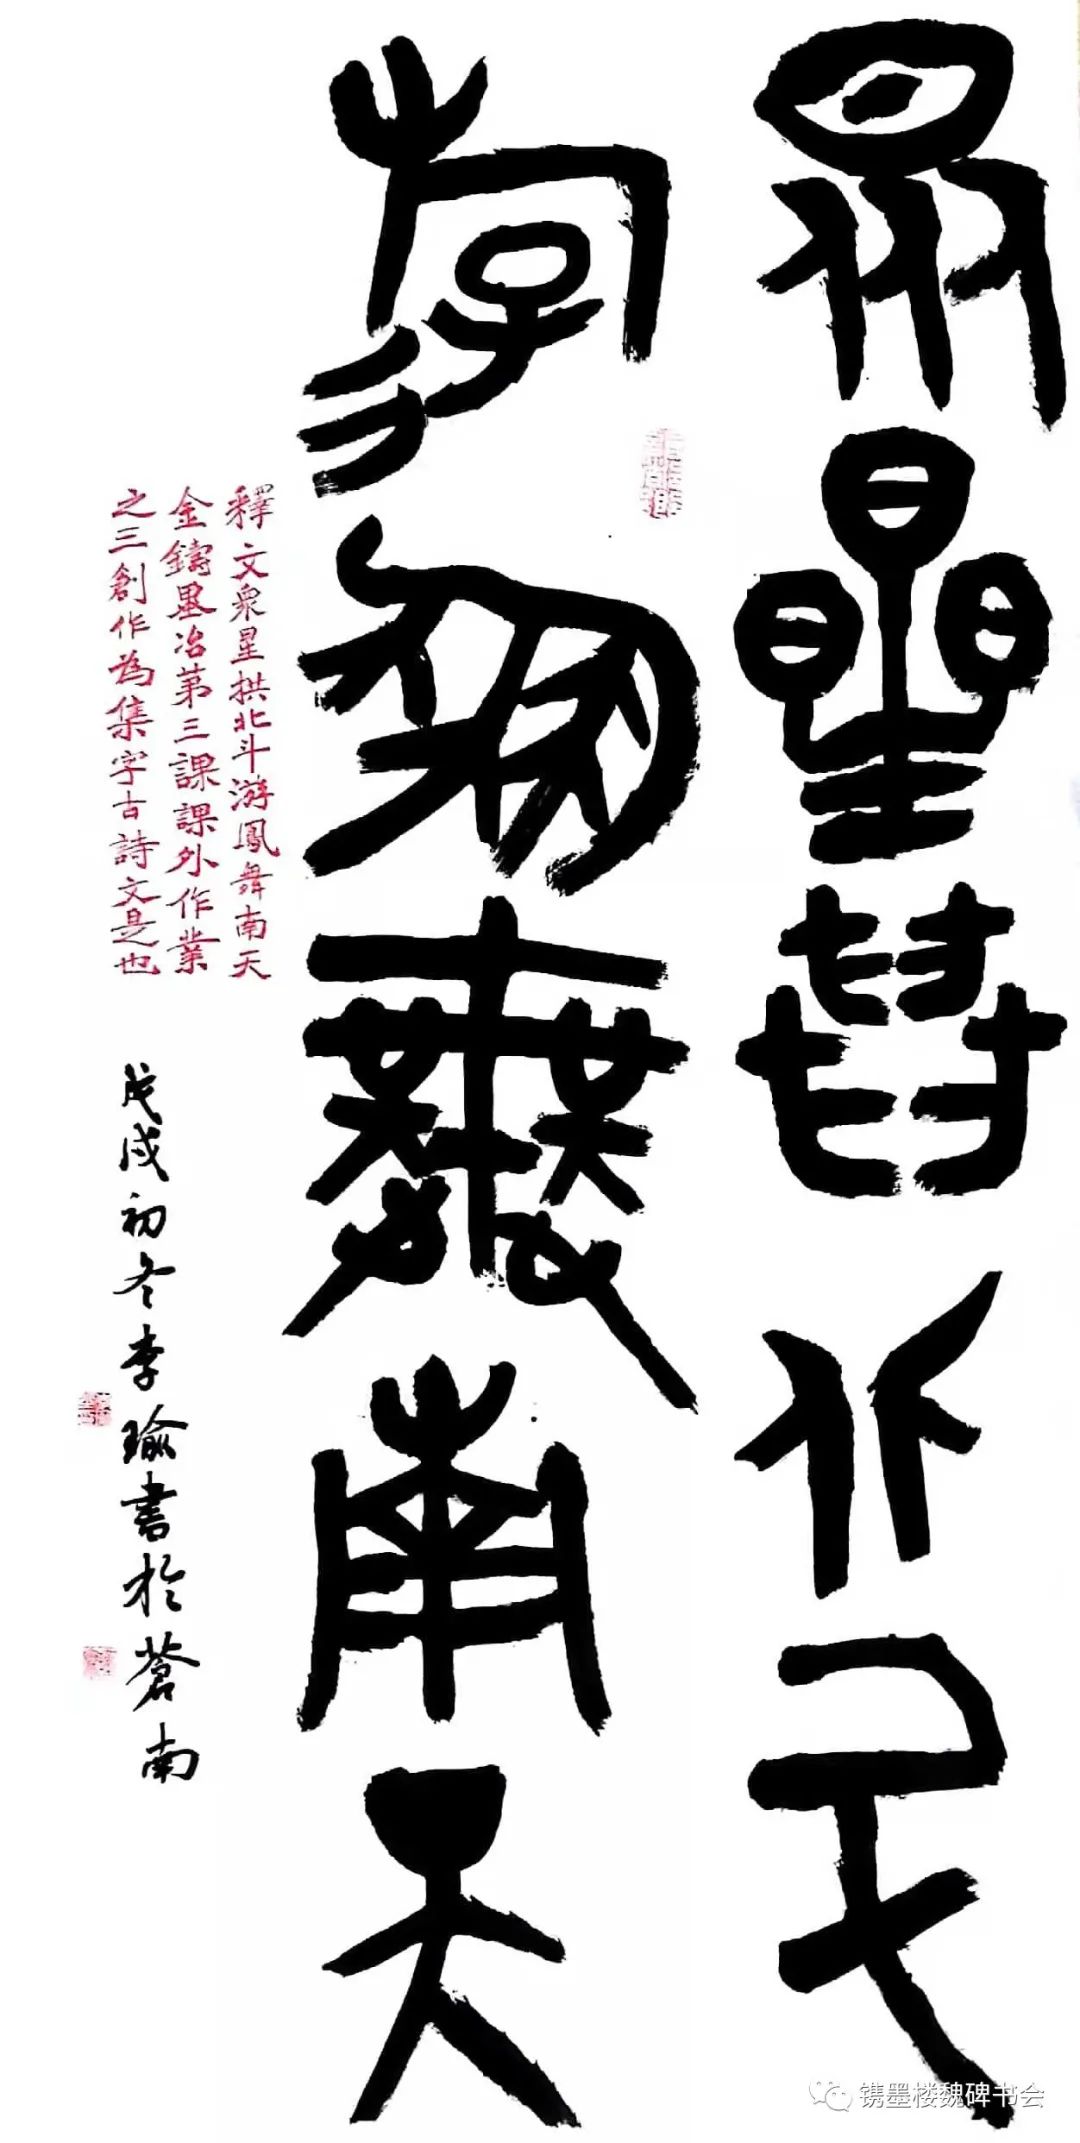 眾星拱北斗
游鳳舞南天
釋文眾星拱北斗游鳳舞南天
金鑄墨冶第三課課外作業
之三創作為集字古詩文是也
戊戌初冬李瑜書於蒼南
镌墨楼魏碑书会